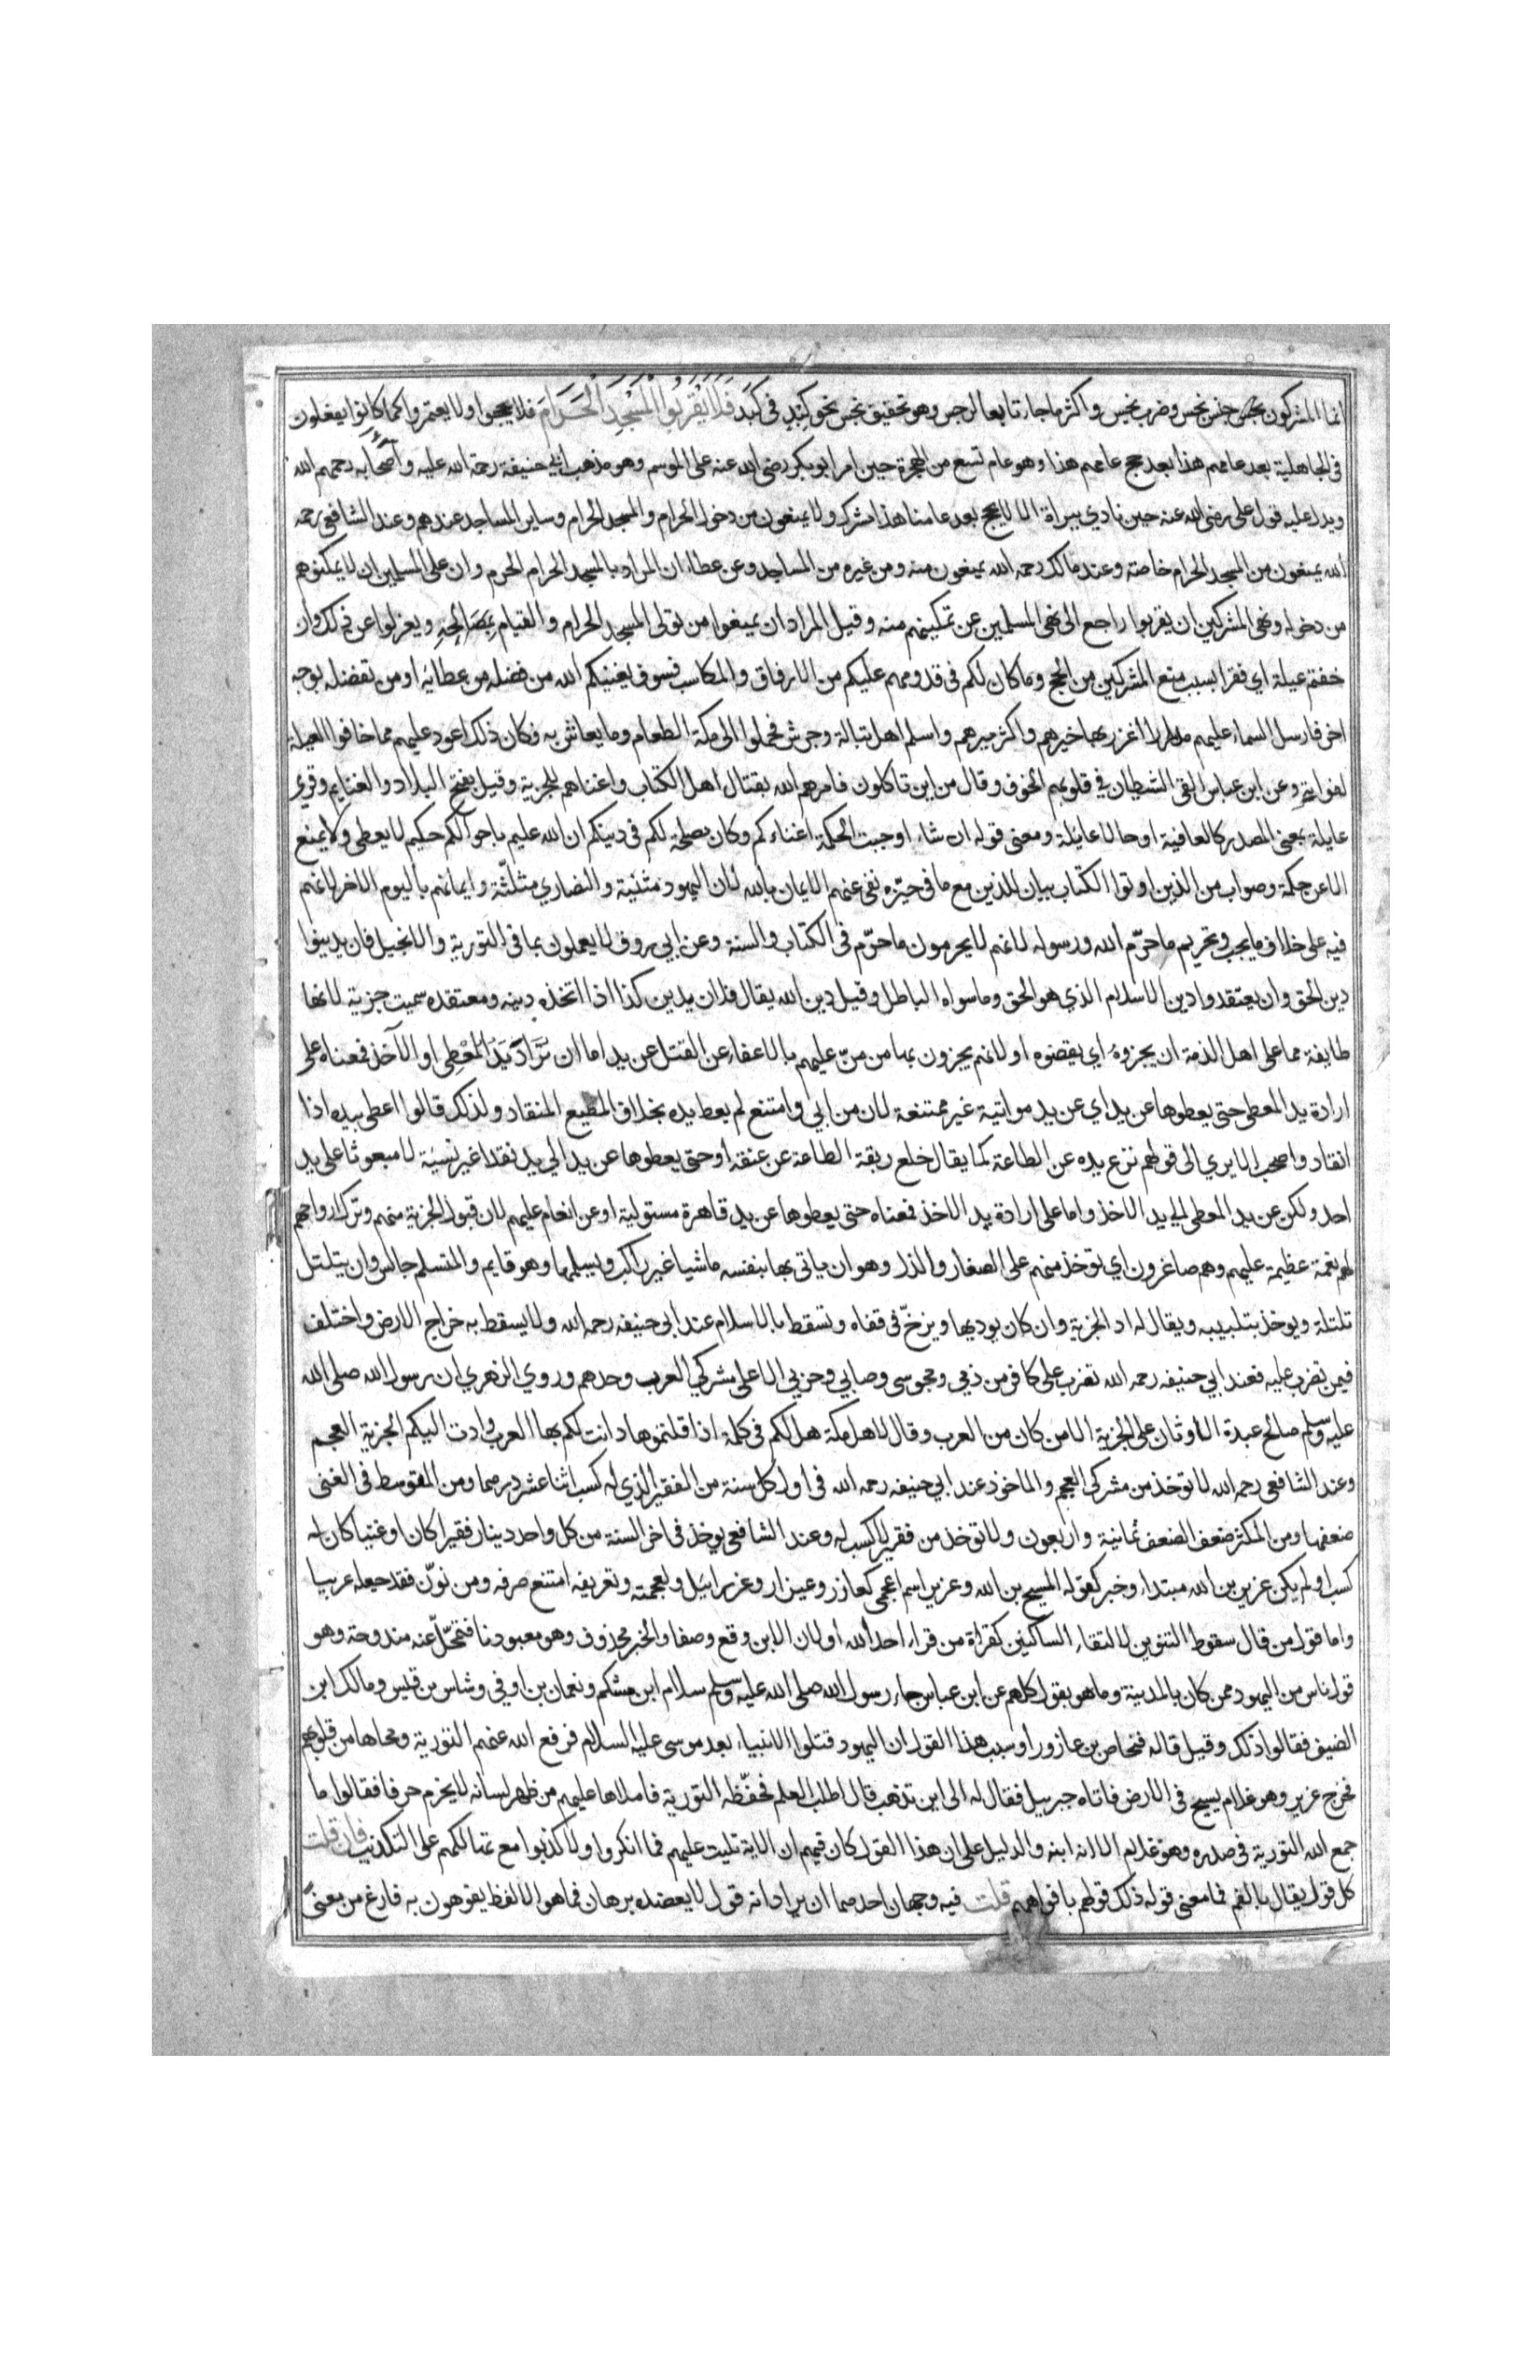 انما المشركون نجس جنس نجس وضرب نجس واكثر ماجاء تابعا لرجس وهو تخفيف نجس نحو كبد فى كبد فَلَا يَقْرَبُوا الْمَسْجِدَ الْحَرَامَ فلا يحجوا ولا يعتمروا كما كانوا يفعلون
فى الجاهلية بعد عامهم هذا بعد حج عامهم هذا وهو عام تسع من الهجرة حين امر ابو بكر رضى الله عنه على الموسم وهو مذهب ابى حنيفة رحمة الله عليه واصحابه رحمهم الله
ويدل عليه قول على رضى الله عنه حين نادي ببراة الا لا يحج بعد عامنا هذا مشرك ولا يمنعون من دخول الحرام والمسجد الحرام وساير المساجد عندهم وعند الشافعى رحمه
الله يمنعون من المسجد الحرام خاصة وعند مالك رحمه الله يمنعون منه ومن غيره من المساجد وعن عطاء ان المراد بالمسجد الحرام الحرم وان على المسلمين ان لا يمكنوهم
من دخوله ونهى المشركين ان يقربوا راجع الى نهى المسلمين عن تمكينهم منه وقيل المراد ان يمنعوا من تولى المسجد الحرام والقيام بمصالحه ويعزلوا عن ذلك وان
خفتم عيلة اي فقرا بسبب منع المشركين من الحج وما كان لكم فى قدومهم عليكم من الارفاق والمكاسب فسوف يغنيكم الله من فضله من عطائه او من تفضله بوجه
اخر فارسل السماء عليهم مدرارا اغزر بها خيرهم واكثر ميرهم واسلم اهل تبالة وجرش فحملوا الى مكة الطعام وما يعاش به فكان ذلك اعود عليهم مما خافوا العيلة
لفواته وعن ابن عباس القى الشيطان في قلوبهم الخوف وقال من اين تاكلون فامرهم الله بقتال اهل الكتاب واغناهم للجزية وقيل بفتح البلاد والغنايم وقري
عايلة بمعنى المصدر كالعافية او حالا عائلة ومعنى قوله ان شاء اوجبت الحكمة اغناءكم وكان مصلحة لكم فى دينكم ان الله عليم باحوالكم حكيم لا يعطى ولا يمنع
الا عن حكمة وصواب من الذين اوتوا الكتاب بيان للذين مع ما فى حيّزه نفى عنهم الايمان بالله لان اليهود مثنية والنصاري مثلّثة وايمانهم باليوم الاخر لانهم
فيه على خلاف ما يجب وتحريم ما حرّم الله ورسوله لانهم لا يحرمون ما حرّم فى الكتاب والسنة وعن ابى روق لا يعملون بما فى التورية والانجيل فان يدينوا
دين الحق وان يعتقدوا دين الاسلام الذي هو الحق وما سواه الباطل وقيل دين الله يقال فلان يدين كذا اذا اتخذه دينه ومعتقده سميت جزية لانها
طايفة مما على اهل الذمة ان يجزوه اي يقضوه او لانهم يجزون بها من منّ عليهم بالاعفاء عن القتل عن يد اما ان تُرَادَ يَدَ المُعْطِى او الآخذ فمعناه على
ارادة يد المعطى حتى يعطوها عن يد اي عن يد مواتية غير ممتنعة لان من ابي وامتنع لم يعط يده بخلاف المطيع المنقاد ولذلك قالوا اعطى بيده اذا
انقاد واصحب الا يري الى قولهم نزع يده عن الطاعة كما يقال خلع ربقة الطاعة عن عنقه او حتى يعطوها عن يد الي يد نقدا غير نسيئة لا مبعوثا على يد
احد ولكن عن يد المعطى الى يد الاخذ واما على ارادة يد الاخذ فمعناه حتى يعطوها عن يد قاهرة مستولية او عن انعام عليهم لان قبول الجزية منهم وترك ارواحهم
لهم نعمة عظيمة عليهم وهم صاغرون اي توخذ منهم على الصغار والذل وهو ان ياتى بها بنفسه ماشيا غير راكب ويسلمها وهو قايم والمتسلم جالس وان يتلتل
تلتلة ويوخذ بتلبيبه ويقال له اد الجزية وان كان يوديها ويزخّ فى قفاه وتسقط بالاسلام عند ابى حنيفه رحمه الله ولا يسقط به خراج الارض واختلف
فيمن تضرب عليه فعند ابي حنيفه رحمه الله تضرب على كافر من ذمي ومجوسى وصابي وحربي الا على مشركي العرب وحدهم وروي الزهري ان رسول الله صلى الله
عليه وسلم صالح عبدة الاوثان على الجزية الا من كان من العرب وقال لاهل مكة هل لكم فى كلمة اذا قلتموها دانت لكم بها العرب وادت اليكم الجزية العجم
وعند الشافعى رحمه الله لا توخذ من مشركى العجم والماخوذ عند ابي حنيفه رحمه الله فى اول كل سنة من الفقير الذي له كسب اثنا عشر درهما ومن المتوسط فى الغنى
ضعفها ومن المكثر ضعف الضعف ثمانية واربعون ولا توخذ من فقير لا كسب له وعند الشافعى يوخذ فى اخر السنة من كل واحد دينار فقيرا كان او غنيا كان له
كسب او لم يكن عزير بن الله مبتداء وخبر كقوله المسيح بن الله وعزير اسم اعجمى كعازر وعيزار وعزرائيل ولعجمته وتعريفه امتنع صرفه ومن نوّن فقد جعله عربيا
واما قول من قال سقوط التنوين لالتقاء الساكنين كقراة من قراء احد الله او لان الابن وقع وصفا والخبر محذوف وهو معبودنا فتمحّل عنه مندوحة وهو
قول ناس من اليهود ممن كان بالمدينة وما هو بقول كلهم عن ابن عباس جاء رسول الله صلى الله عليه وسلم سلام ابن مشكم ونعمان بن اوفي وشاس بن قيس ومالك ابن
الضيف فقالوا ذلك وقيل قاله فنحاص بن عازورا وسبب هذا القول ان اليهود قتلوا الانبياء بعد موسى عليه السلام فرفع الله عنهم التورية ومحاها من قلوبهم
فخرج عزير وهو غلام يسيح فى الارض فاتاه جبرييل فقال له الى اين تذهب قال اطلب العلم فحفّظه التورية فاملاها عليهم من ظهر لسانه لا يخرم حرفا فقالوا ما
جمع الله التورية فى صدره وهو غلام الا لانه ابنه والدليل على ان هذا القول كان فيهم ان الاية تليت عليهم فما انكروا ولا كذبوا مع تهالكهم على التكذيب فان قلت
كل قول يقال بالفم فما معنى قوله ذلك قولهم بافواههم قلت فيه وجهان احدهما ان يراد انه قول لا يعضده برهان فما هو الا لفظ يفوهون به فارغ من معنىً